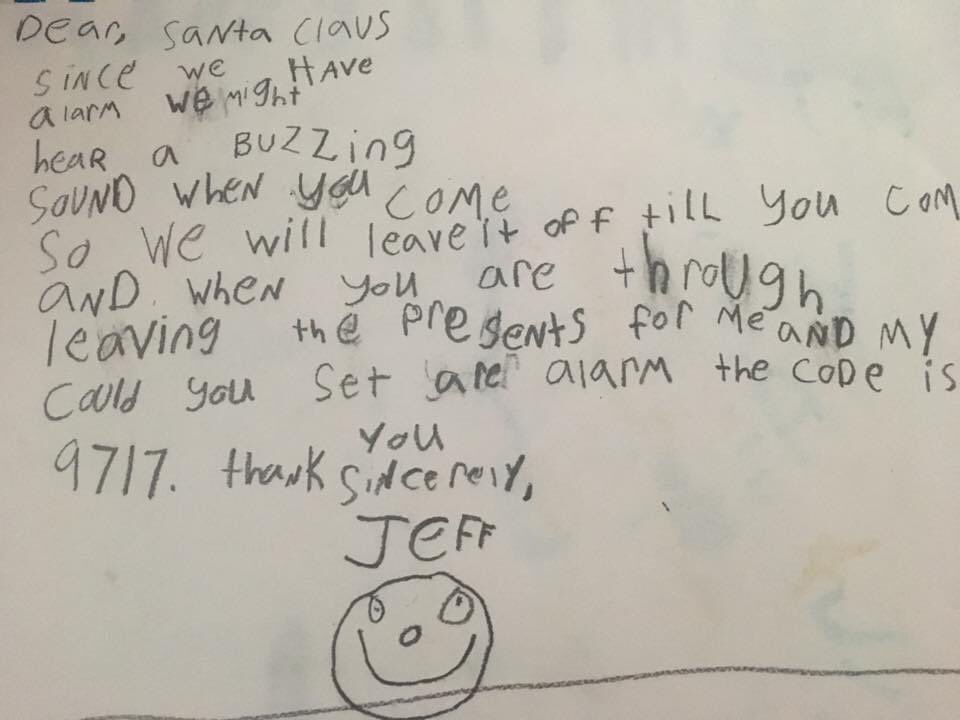 Dear, Santa Claus
since we HAVE
alarm we might
hear a BUZZing
SOUND when you come
So we will leave it off till you com
AND. when you are through
leaving the presents for me AND MY
Could you set are alarm the CODE is
9717. thank you
sincerely,
JEFF